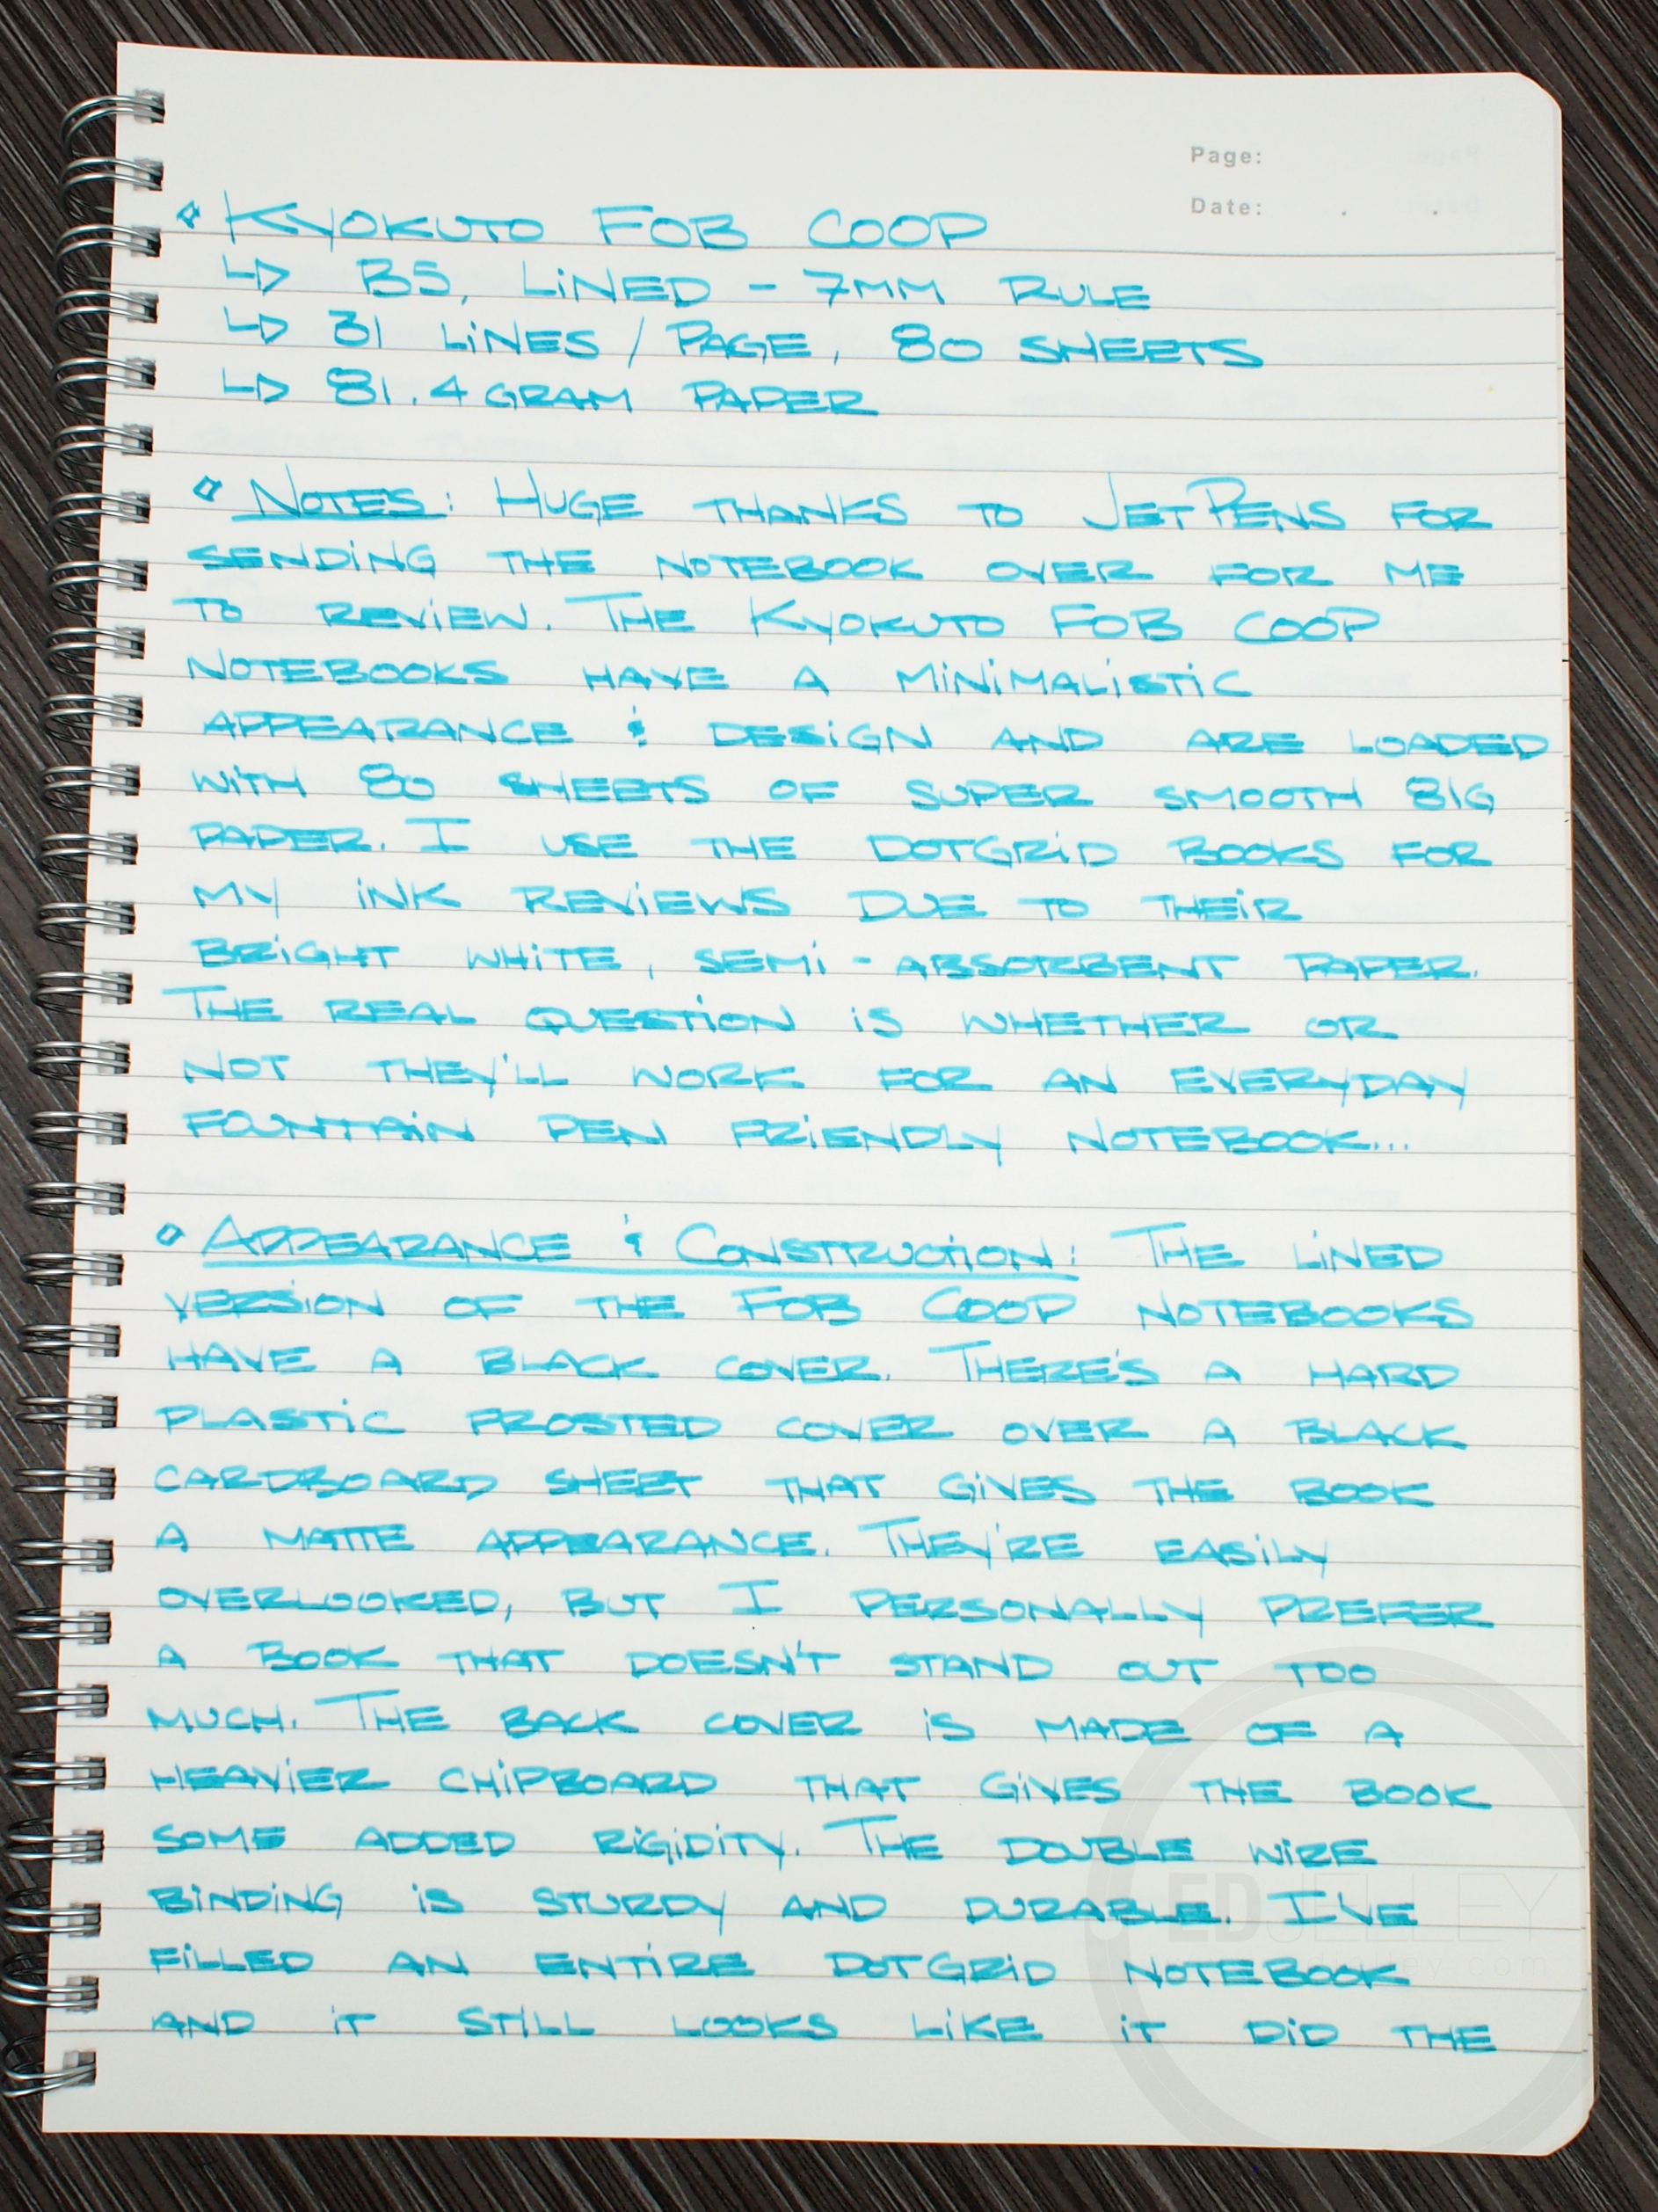 Page:
Date: . .
◇ KYOKUTO FOB COOP
↳ B5, LiNED - 7MM RULE
↳ 31 LiNES / PAGE, 80 SHEETS
↳ 81.4 GRAM PAPER
◇ NOTES: HUGE THANKS TO JETPENS FOR
SENDiNG THE NOTEBOOK OVER FOR ME
TO REViEW. THE KYOKUTO FOB COOP
NOTEBOOKS HAVE A MiNiMALiSTiC
APPEARANCE & DESiGN AND ARE LOADED
WiTH 80 SHEETS OF SUPER SMOOTH 81G
PAPER. I USE THE DOTGRiD BOOKS FOR
MY iNK REViEWS DUE TO THEiR
BRiGHT WHiTE, SEMi-ABSORBENT PAPER.
THE REAL QUESTiON iS WHETHER OR
NOT THEY'LL WORK FOR AN EVERYDAY
FOUNTAiN PEN FRiENDLY NOTEBOOK...
◇ APPEARANCE & CONSTRUCTiON: THE LiNED
VERSiON OF THE FOB COOP NOTEBOOKS
HAVE A BLACK COVER. THERE'S A HARD
PLASTiC FROSTED COVER OVER A BLACK
CARDBOARD SHEET THAT GiVES THE BOOK
A MATTE APPEARANCE. THEY'RE EASiLY
OVERLOOKED, BUT I PERSONALLY PREFER
A BOOK THAT DOESN'T STAND OUT TOO
MUCH. THE BACK COVER iS MADE OF A
HEAViER CHiPBOARD THAT GiVES THE BOOK
SOME ADDED RiGiDiTY. THE DOUBLE WiRE
BiNDiNG iS STURDY AND DURABLE. I'VE
FiLLED AN ENTiRE DOTGRiD NOTEBOOK
AND iT STiLL LOOKS LiKE iT DiD THE
EDJELLEY